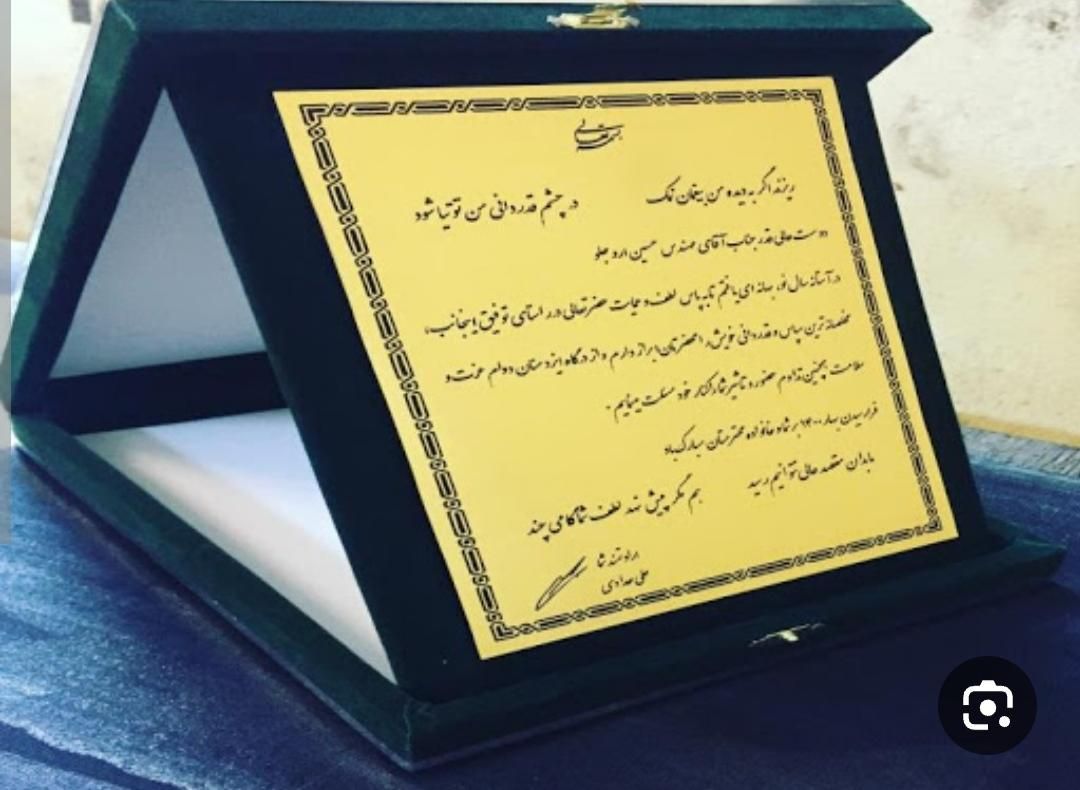 بسمه تعالی
ریزند اگر به دیده من بیغمان نمک در چشم قدردانی من توتیا شود
دوست عالی قدر جناب آقای مهندس حسین
در آستانه سال نو، بهانه ای یافتم تا به پاس لطف و عنایت حضرتعالی در راستای توفیق اینجانب،
مخلصانه ترین سپاس و قدردانی خویش را محضرتان ابراز دارم و از درگاه ایزد منان دوام عزت و
سلامت همچنین تداوم حضور و تاثیرگذار خود مسئلت مینمایم.
فرارسیدن بهار ۱۴۰۰ بر شما و خانواده محترمتان مبارک باد
ما بدان مقصد عالی نتوانیم رسید هم مگر پیش نهد لطف شما گامی چند
ارادتمند شما
علی